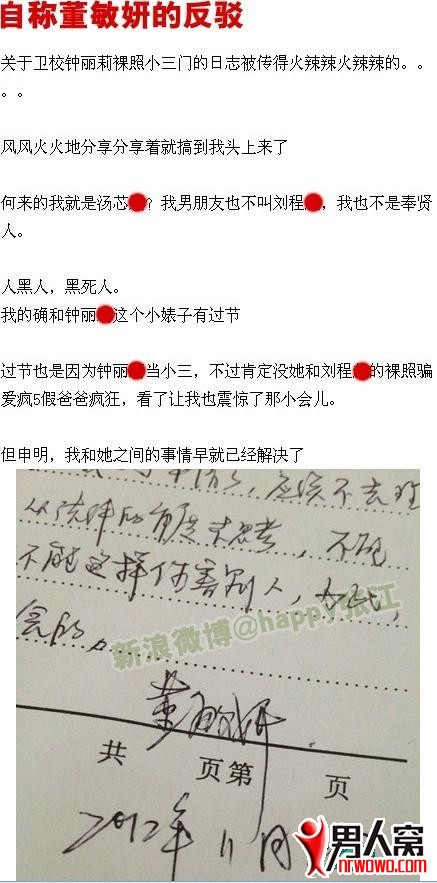 自称董敏妍的反驳
关于卫校钟丽莉裸照小三门的日志被传得火辣辣火辣辣的。。
。。
风风火火地分享分享着就搞到我头上来了
何来的我就是汤芯？我男朋友也不叫刘程，我也不是奉贤
人。
人黑人，黑死人。
我的确和钟丽这个小婊子有过节
过节也是因为钟丽当小三，不过肯定没她和刘程的裸照骗
爱疯5假爸爸疯狂，看了让我也震惊了那小会儿。
但申明，我和她之间的事情早就已经解决了
从法律的角度来思考，不能
不能这样伤害别人，
新浪微博@happy张江
董敏妍
共 页第 页
2012年11月
男人窝
nrwowo.com